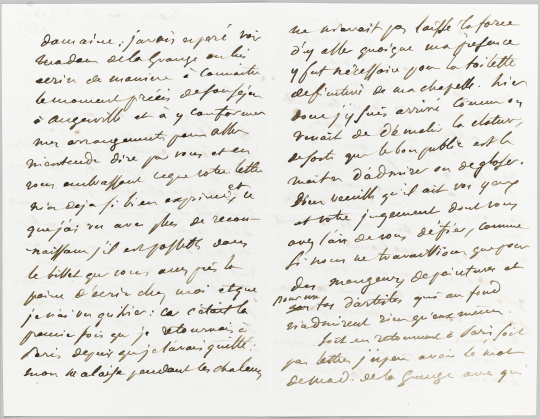 domaine : j'avais espéré voir
Madame de la Grange ou lui
écrire de manière à connaitre
le moment précis de son séjour
à Augerville et à y conformer
mes arrangements pour aller
m'entendre dire par vous et en
vous embrassant ce que votre lettre
m'a deja si bien exprimé, et ce
que j'ai vu avec plus de recon-
naissance, s'il est possible dans
le billet que vous avez pris la
peine d'écrire chez moi et que
je n'ai vu qu'hier : car c'était la
première fois que je retournais à
Paris depuis que je l'avais quitté :
mon malaise pendant les chaleurs
ne m'avait pas laissé la force
d'y aller quoique ma présence
y fut nécessaire pour la toilette
définitive de ma chapelle. hier
donc j'y suis arrivé comme on
venait de démolir la cloture,
de sorte que le bon public est le
maitre d'admirer ou de gloser.
Dieu veuille qu'il ait vos yeux
et votre jugement dont vous
avez l'air de vous défier, comme
si nous ne travaillions que pour
des mangeurs de peintures et
pour des artistes qui au fond
n'admirent rien qu'eux mêmes.
Soit en retournant à Paris soit
par lettre j'espère avoir le mot
de Mad. de la Grange avec qui